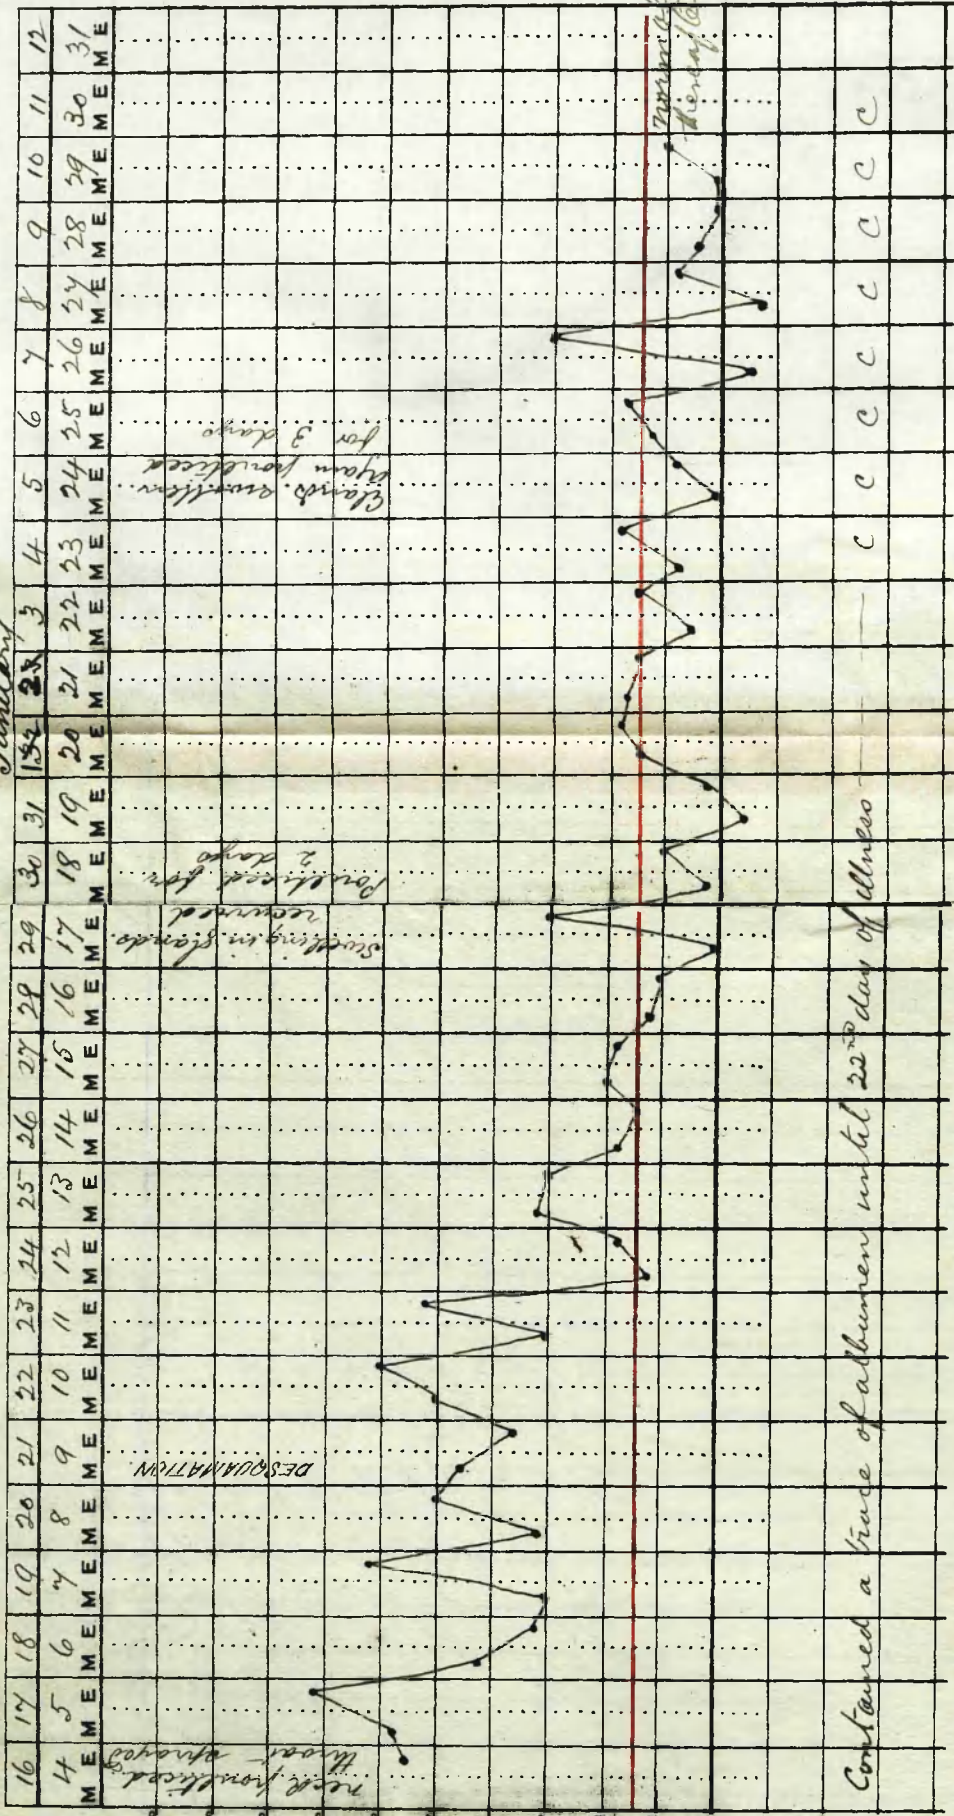 January
16 17 18 19 20 21 22 23 24 25 26 27 28 29 30 31 1 2 3 4 5 6 7 8 9 10 11 12
4 5 6 7 8 9 10 11 12 13 14 15 16 17 18 19 20 21 22 23 24 25 26 27 28 29 30 31
M E M E M E M E M E M E M E M E M E M E M E M E M E M E M E M E M E M E M E M E M E M E M E M E M E M E M E M E
neck poulticed
throat sprayed
DESQUAMATION
Swelling in glands
recurred
Poulticed for
2 days
Glands swollen
again poulticed
for 3 days
thereafter
Contained a trace of albumen until 22nd day of illness — C C C C C C C C